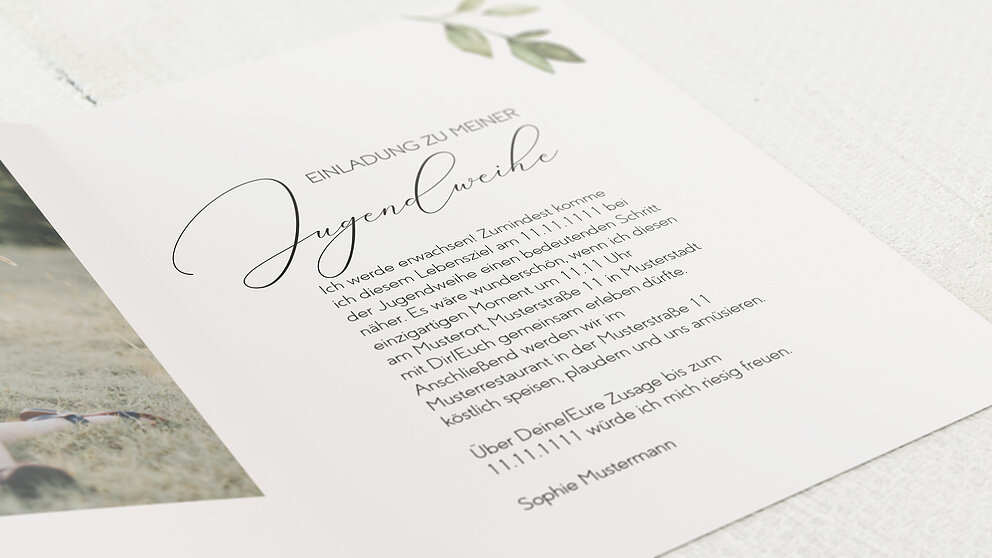 EINLADUNG ZU MEINER
Jugendweihe
Ich werde erwachsen! Zumindest komme
ich diesem Lebensziel am 11.11.1111 bei
der Jugendweihe einen bedeutenden Schritt
näher. Es wäre wunderschön, wenn ich diesen
einzigartigen Moment um 11.11 Uhr
am Musterort, Musterstraße 11 in Musterstadt
mit Dir/Euch gemeinsam erleben dürfte.
Anschließend werden wir im
Musterrestaurant in der Musterstraße 11
köstlich speisen, plaudern und uns amüsieren.
Über Deine/Eure Zusage bis zum
11.11.1111 würde ich mich riesig freuen.
Sophie Mustermann